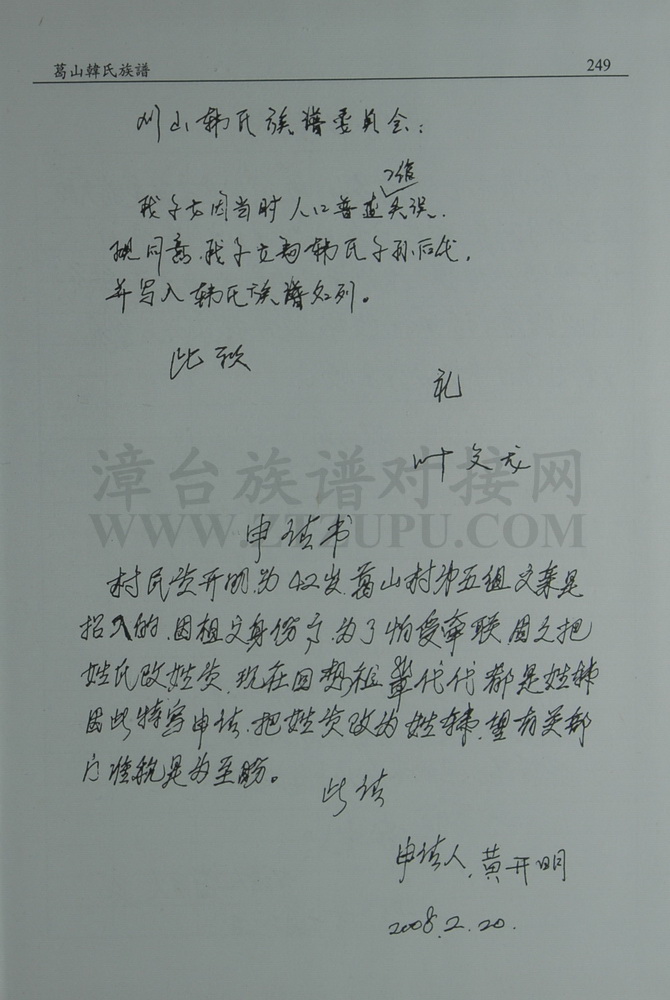 葛山韓氏族譜
249
刈山韩氏族谱委员会:
我子女因当时人口普查工作失误.
现同意我子女为韩氏子孙后代,
并写入韩氏族谱名列。
此致
礼
叶文龙
漳台族谱对接网
WWW.ZTZUPU.COM
申请书
村民黄开明,为42岁,葛山村第五组,父亲是
招入的,因祖父身份,为了怕受牵联,因之把
姓氏改姓黄,现在回想祖辈代代都是姓韩
因此特写申请,把姓黄改为姓韩,望有关部
门准就是为至盼。
此请
申请人,黄开明
2008.2.20.